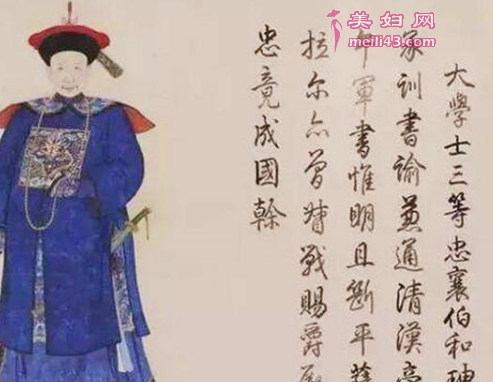 美妇网
meili43.com
大學士三等忠襄伯和珅
承訓書諭兼通清漢高
軍書惟明且斷平薩
拉尔亦曽督戰賜爵
忠竟成國幹